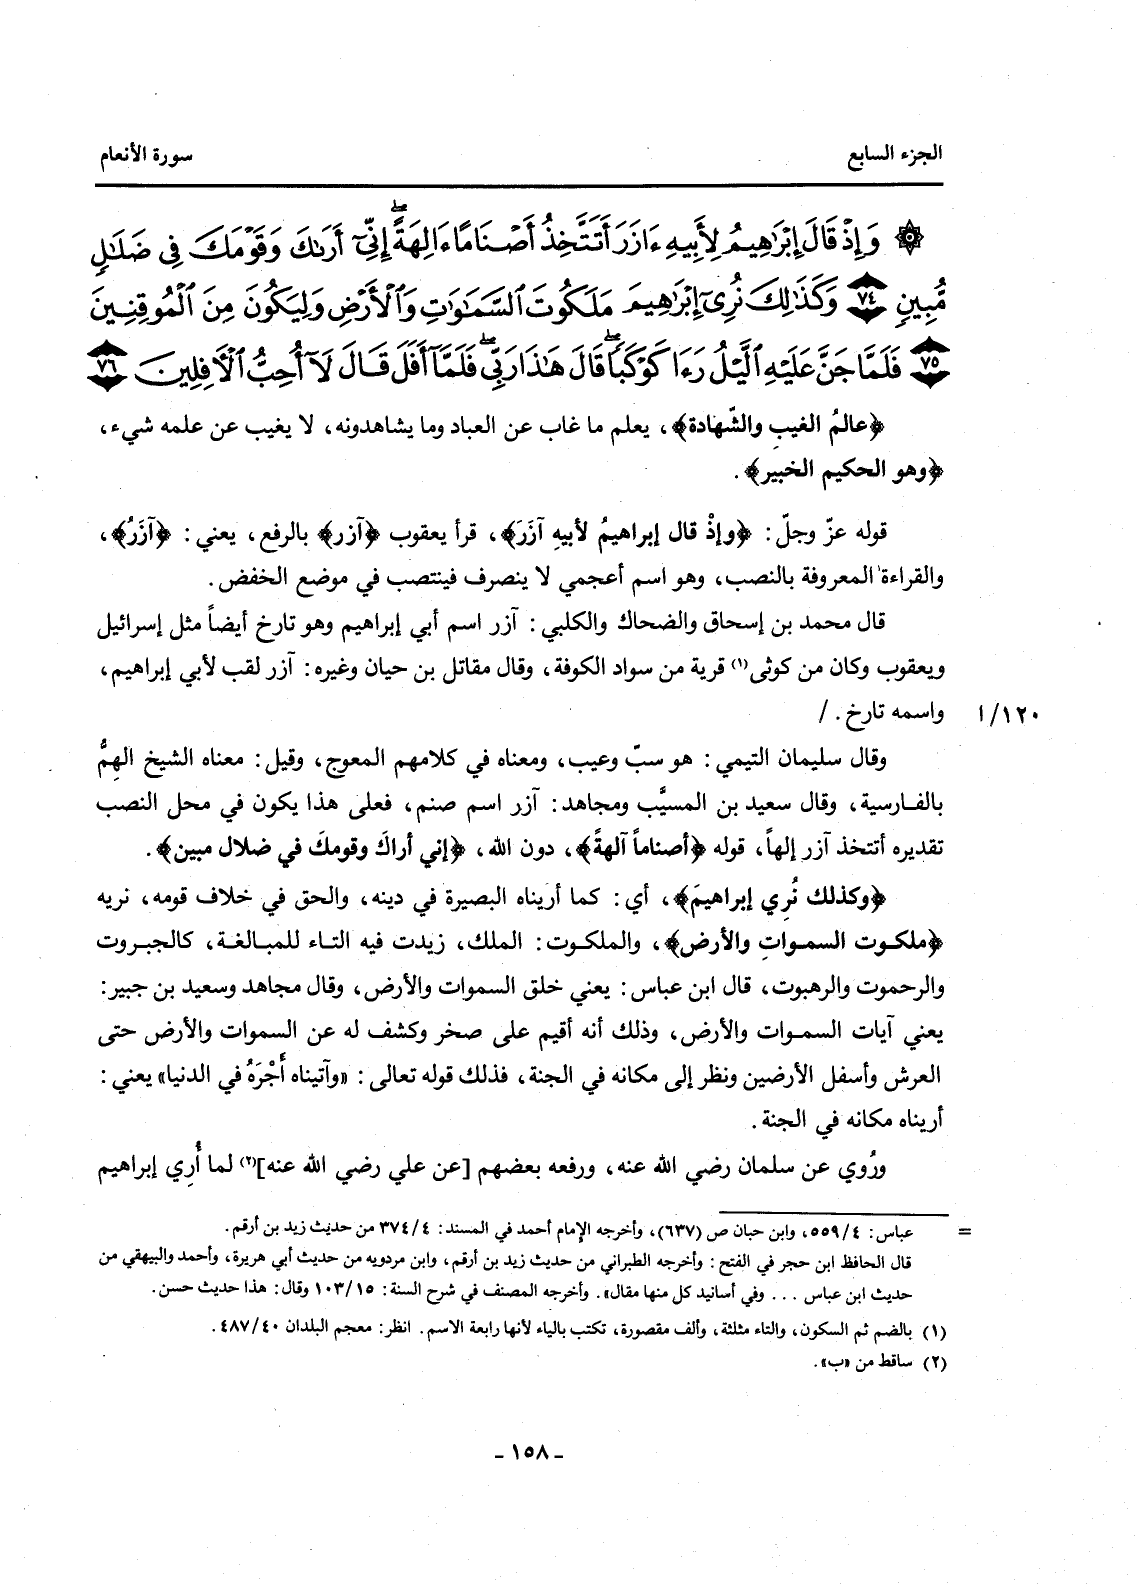 الجزء السابع
سورة الأنعام
۞ وَإِذْ قَالَ إِبْرَٰهِيمُ لِأَبِيهِ ءَازَرَ أَتَتَّخِذُ أَصْنَامًا ءَالِهَةً ۖ إِنِّىٓ أَرَىٰكَ وَقَوْمَكَ فِى ضَلَٰلٍ
مُّبِينٍ ٧٤ وَكَذَٰلِكَ نُرِىٓ إِبْرَٰهِيمَ مَلَكُوتَ ٱلسَّمَٰوَٰتِ وَٱلْأَرْضِ وَلِيَكُونَ مِنَ ٱلْمُوقِنِينَ
٧٥ فَلَمَّا جَنَّ عَلَيْهِ ٱلَّيْلُ رَءَا كَوْكَبًا ۖ قَالَ هَٰذَا رَبِّى ۖ فَلَمَّآ أَفَلَ قَالَ لَآ أُحِبُّ ٱلْأٓفِلِينَ ٧٦
﴿عالمُ الغيبِ والشّهادة﴾، يعلم ما غاب عن العباد وما يشاهدونه، لا يغيب عن علمه شيء،
﴿وهو الحكيم الخبير﴾.
قوله عزّ وجلّ: ﴿وإذْ قال إبراهيمُ لأبيهِ آزَرَ﴾، قرأ يعقوب ﴿آزر﴾ بالرفع، يعني: ﴿آزَرُ﴾،
والقراءة المعروفة بالنصب، وهو اسم أعجمي لا ينصرف فينتصب في موضع الخفض.
قال محمد بن إسحاق والضحاك والكلبي: آزر اسم أبي إبراهيم وهو تارخ أيضاً مثل إسرائيل
ويعقوب وكان من كوثى(١) قرية من سواد الكوفة، وقال مقاتل بن حيان وغيره: آزر لقب لأبي إبراهيم،
١٢٠/ا واسمه تارخ. /
وقال سليمان التيمي: هو سبّ وعيب، ومعناه في كلامهم المعوج، وقيل: معناه الشيخ الهِمُّ
بالفارسية، وقال سعيد بن المسيَّب ومجاهد: آزر اسم صنم، فعلى هذا يكون في محل النصب
تقديره أتتخذ آزر إلهاً، قوله ﴿أصناماً آلهةً﴾، دون الله، ﴿إني أراكَ وقومكَ في ضلال مبين﴾.
﴿وكذلك نُرِي إبراهيمَ﴾، أي: كما أريناه البصيرة في دينه، والحق في خلاف قومه، نريه
﴿ملكوت السمواتِ والأرض﴾، والملكوت: الملك، زيدت فيه التاء للمبالغة، كالجبروت
والرحموت والرهبوت، قال ابن عباس: يعني خلق السموات والأرض، وقال مجاهد وسعيد بن جبير:
يعني آيات السموات والأرض، وذلك أنه أقيم على صخر وكشف له عن السموات والأرض حتى
العرش وأسفل الأرضين ونظر إلى مكانه في الجنة، فذلك قوله تعالى: «وآتيناه أَجْرَهُ في الدنيا» يعني:
أريناه مكانه في الجنة.
ورُوي عن سلمان رضي الله عنه، ورفعه بعضهم [عن علي رضي الله عنه](٢) لما أُرِي إبراهيم
= عباس: ٥٥٩/٤، وابن حبان ص (٦٣٧)، وأخرجه الإمام أحمد في المسند: ٣٧٤/٤ من حديث زيد بن أرقم.
قال الحافظ ابن حجر في الفتح: وأخرجه الطبراني من حديث زيد بن أرقم، وابن مردويه من حديث أبي هريرة، وأحمد والبيهقي من
حديث ابن عباس ... وفي أسانيد كل منها مقال». وأخرجه المصنف في شرح السنة: ١٠٣/١٥ وقال: هذا حديث حسن.
(١) بالضم ثم السكون، والثاء مثلثة، وألف مقصورة، تكتب بالياء لأنها رابعة الاسم. انظر: معجم البلدان ٤٨٧/٤٠.
(٢) ساقط من «ب».
- ١٥٨ -